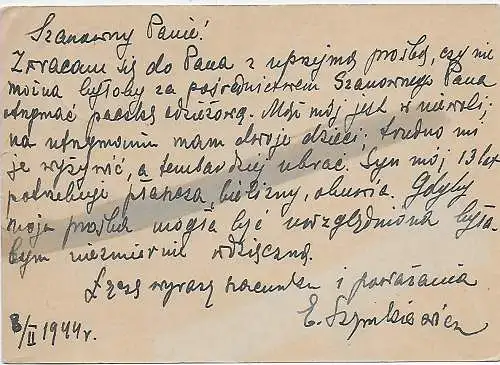 Szanowny Panie!
Zwracam się do Pana z uprzejmą prośbą, czy nie
można byłoby za pośrednictwem Szanownego Pana
otrzymać paczkę odzieżową. Mąż mój jest w niewoli,
na utrzymaniu mam dwoje dzieci. trudno mi
je wyżywić, a tembardziej ubrać. Syn mój 13 lat
potrzebuje płaszcza, bielizny, obuwia. Gdyby
moja prośba mogła być uwzględniona była-
bym niezmiernie wdzięczną.
Łączę wyrazy szacunku i poważania
E. Szymkiewicz
8/II 1944 r.